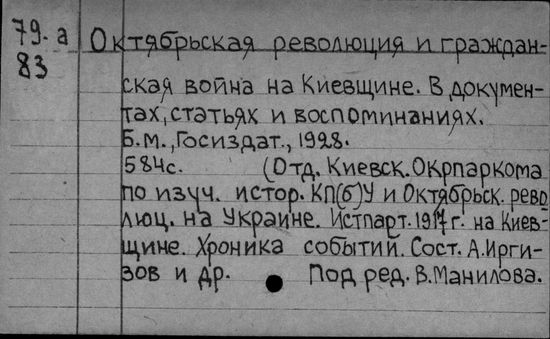 79.а Октябрьская революция и граждан-
83
ская война на Киевщине. В докумен-
тах, статьях и воспоминаниях.
Б.м., Госиздат., 1928.
584с. (Отд. Киевск. Окрпаркома
по изуч. истор. КП(б)У и Октябрьск. рево
люц. на Украине. Истпарт. 1917г. на Киев-
щине. Хроника событий. Сост. А.Ирги-
зов и др. Под ред. В.Манилова.